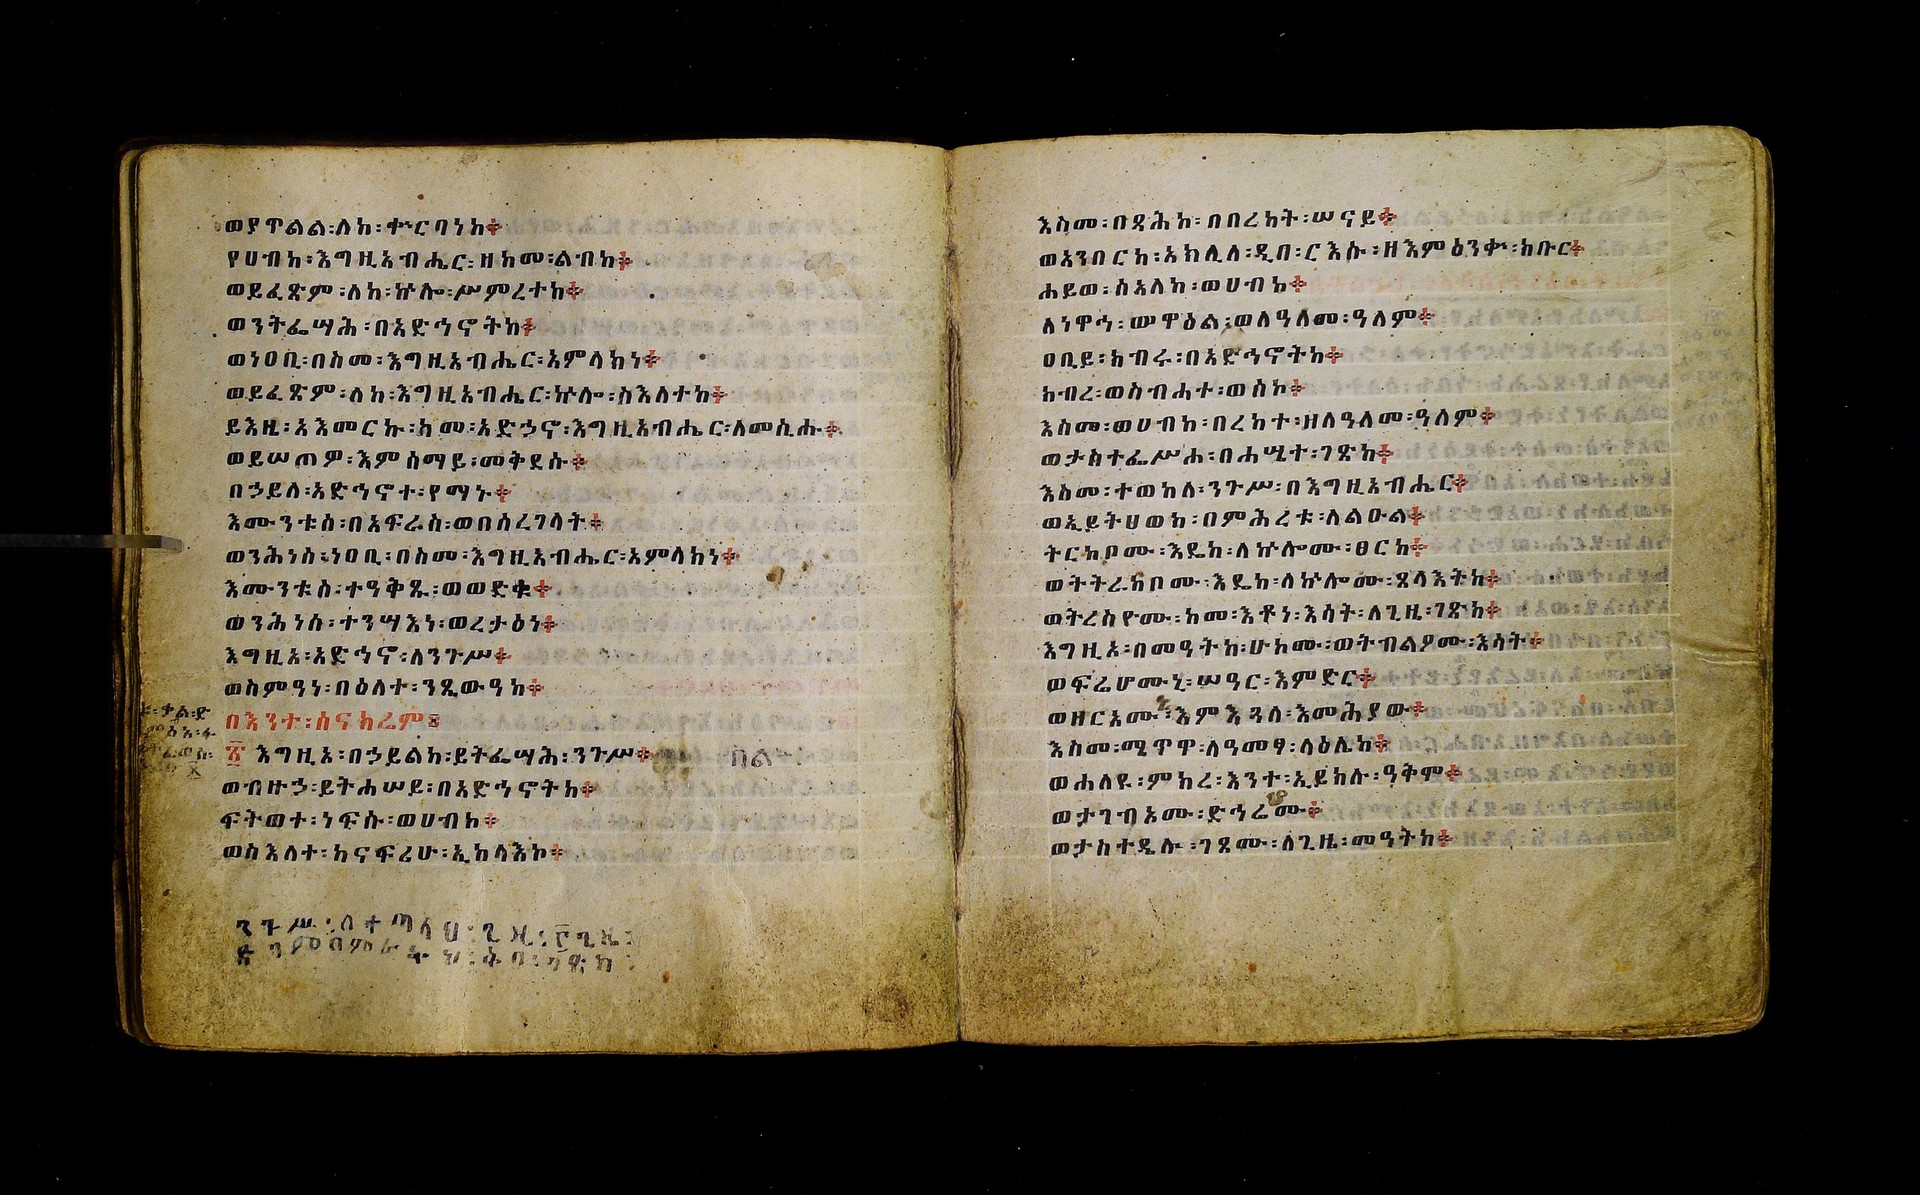 ወያጥልል፡ለከ፡ቍርባነከ፨
የሀብከ፡እግዚአብሔር፡ዘከመ፡ልብከ፨
ወይፈጽም፡ለከ፡ኵሎ፡ሥምረተከ፨
ወንትፌሣሕ፡በአድኅኖትከ፨
ወነዐቢ፡በስመ፡እግዚአብሔር፡አምላከነ፨
ወይፈጽም፡ለከ፡እግዚአብሔር፡ኵሎ፡ስእለተከ፨
ይእዜ፡አእመርኩ፡ከመ፡አድኃኖ፡እግዚአብሔር፡ለመሲሑ፨
ወይሠጠዎ፡እምሰማይ፡መቅደሱ፨
በኃይለ፡አድኅኖተ፡የማኑ፨
እሙንቱሰ፡በአፍራስ፡ወበሰረገላት፨
ወንሕነሰ፡ነዐቢ፡በስመ፡እግዚአብሔር፡አምላከነ፨
እሙንቱሰ፡ተዓቅጹ፡ወወድቁ፨
ወንሕነሰ፡ተንሣእነ፡ወረታዕነ፨
እግዚአ፡አድኅኖ፡ለንጉሥ፨
ወስምዓነ፡በዕለተ፡ንጼውዓከ፨
በእንተ፡ሰናክሬም፡፡
፳ እግዚአ፡በኃይልከ፡ይትፌሣሕ፡ንጉሥ፨
ወብዙኃ፡ይትሐሠይ፡በአድኅኖትከ፨
ፍትወተ፡ነፍሱ፡ወሀብከ፨
ወስእለተ፡ከናፍሪሁ፡ኢከላእኮ፨
እስመ፡በጻሕከ፡በበረከት፡ሠናይ፨
ወአንበርከ፡አክሊለ፡ዲበ፡ርእሱ፡ዘእምዕንቍ፡ክቡር፨
ሐይወ፡ስአለከ፡ወሀብከ፨
ለነዋኅ፡መዋዕል፡ወለዓለመ፡ዓለም፨
ዐቢይ፡ክብሩ፡በአድኅኖትከ፨
ክብረ፡ወስብሓተ፡ወሰኮ፨
እስመ፡ወሀብከ፡በረከተ፡ዘለዓለመ፡ዓለም፨
ወታስተፌሥሐ፡በሐሤተ፡ገጽከ፨
እስመ፡ተወከለ፡ንጉሥ፡በእግዚአብሔር፨
ወኢይትሀወክ፡በምሕረቱ፡ለልዑል፨
ትርከቦሙ፡እዴከ፡ለኵሎሙ፡ፀርከ፨
ወትትራከቦሙ፡እዴከ፡ለኵሎሙ፡ጸላእትከ፨
ወትረስዮሙ፡ከመ፡እቶነ፡እሳት፡ለጊዜ፡ገጽከ፨
እግዚአ፡በመዓትከ፡ሁከሙ፡ወትብልዖሙ፡እሳት፨
ወፍሬሆሙኒ፡ሠዓር፡እምድር፨
ወዘርአሙ፡እምእጓለ፡እመሕያው፨
እስመ፡ሜጥዋ፡ለዓመፃ፡ላዕሌከ፨
ወሐለዩ፡ምክረ፡እንተ፡ኢይክሉ፡ዓቅም፨
ወታገብኦሙ፡ድኅሬሙ፨
ወታስተዴሉ፡ገጸሙ፡ለጊዜ፡መዓትከ፨